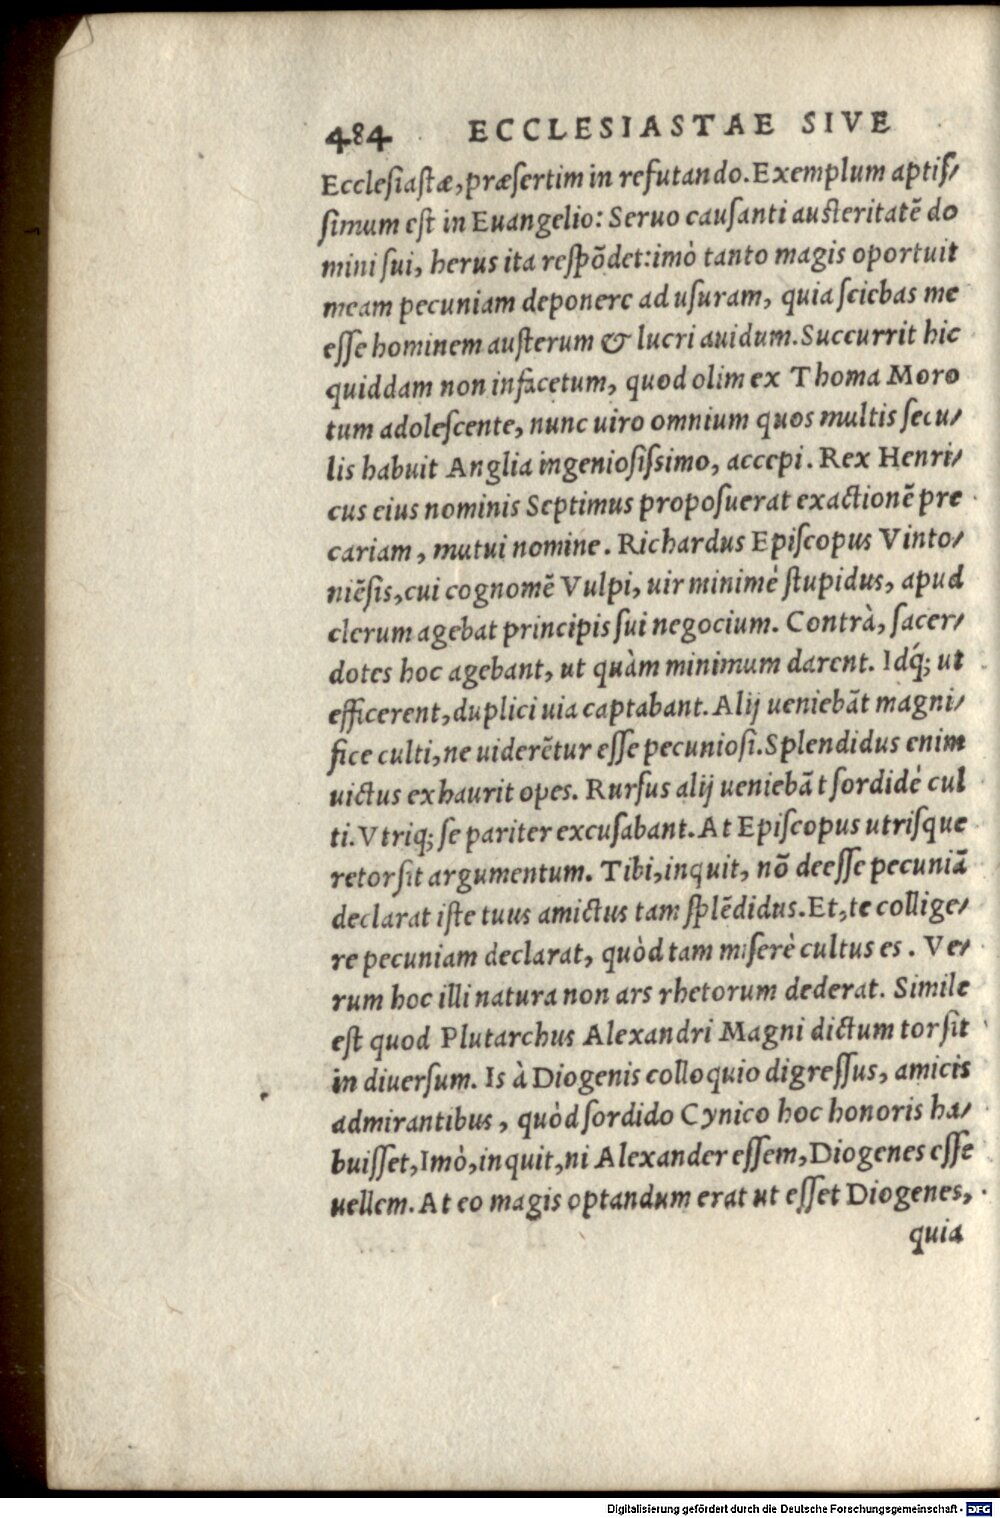 484 ECCLESIASTAE SIVE
Ecclesiastæ, præsertim in refutando. Exemplum aptis/
simum est in Euangelio: Seruo causanti austeritatē do
mini sui, herus ita respōdet: imò tanto magis oportuit
meam pecuniam deponere ad usuram, quia sciebas me
esse hominem austerum & lucri auidum. Succurrit hic
quiddam non infacetum, quod olim ex Thoma Moro
tum adolescente, nunc uiro omnium quos multis secu/
lis habuit Anglia ingeniosissimo, accepi. Rex Henri/
cus eius nominis Septimus proposuerat exactionē pre
cariam, mutui nomine. Richardus Episcopus Vinto/
niēsis, cui cognomē Vulpi, uir minimè stupidus, apud
clerum agebat principis sui negocium. Contrà, sacer/
dotes hoc agebant, ut quàm minimum darent. Idq́; ut
efficerent, duplici uia captabant. Alij ueniebāt magni/
fice culti, ne uiderētur esse pecuniosi. Splendidus enim
uictus exhaurit opes. Rursus alij ueniebāt sordidè cul
ti. Vtriq; se pariter excusabant. At Episcopus utrisque
retorsit argumentum. Tibi, inquit, nō deesse pecuniā
declarat iste tuus amictus tam splēdidus. Et, te collige/
re pecuniam declarat, quòd tam miserè cultus es. Ve/
rum hoc illi natura non ars rhetorum dederat. Simile
est quod Plutarchus Alexandri Magni dictum torsit
in diuersum. Is à Diogenis colloquio digressus, amicis
admirantibus, quòd sordido Cynico hoc honoris ha/
buisset, Imò, inquit, ni Alexander essem, Diogenes esse
uellem. At eo magis optandum erat ut esset Diogenes,
quia
Digitalisierung gefördert durch die Deutsche Forschungsgemeinschaft - DFG